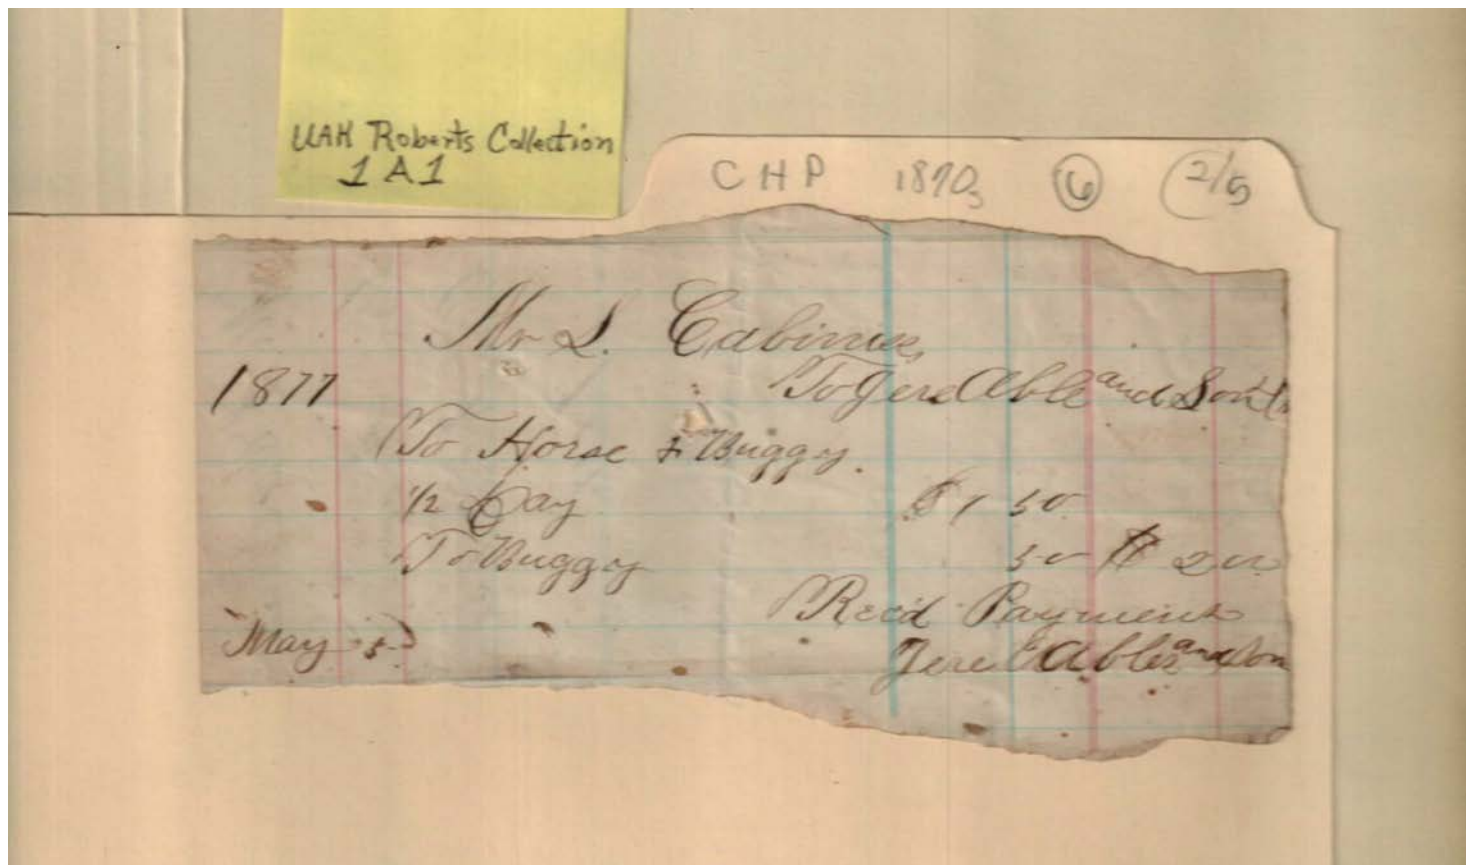 UAH Roberts Collection
1A1
CHP 1870s 6 2/5
Mr L. Cabiniss
1877 To Jere Able and Son
To Horse & Buggy
1/2 Day $1 50
To Buggy 50 $ 2 00
Rec'd Payment
May 5 Jere Ables and Son